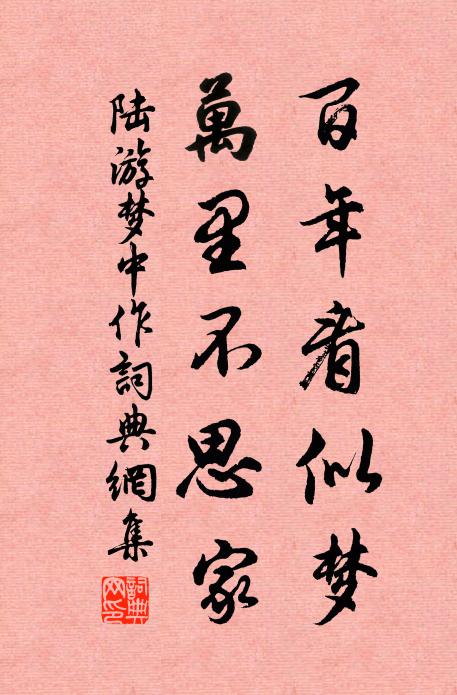 百年看似梦
萬里不思家
陆游梦中作詞典網集
詞典網印